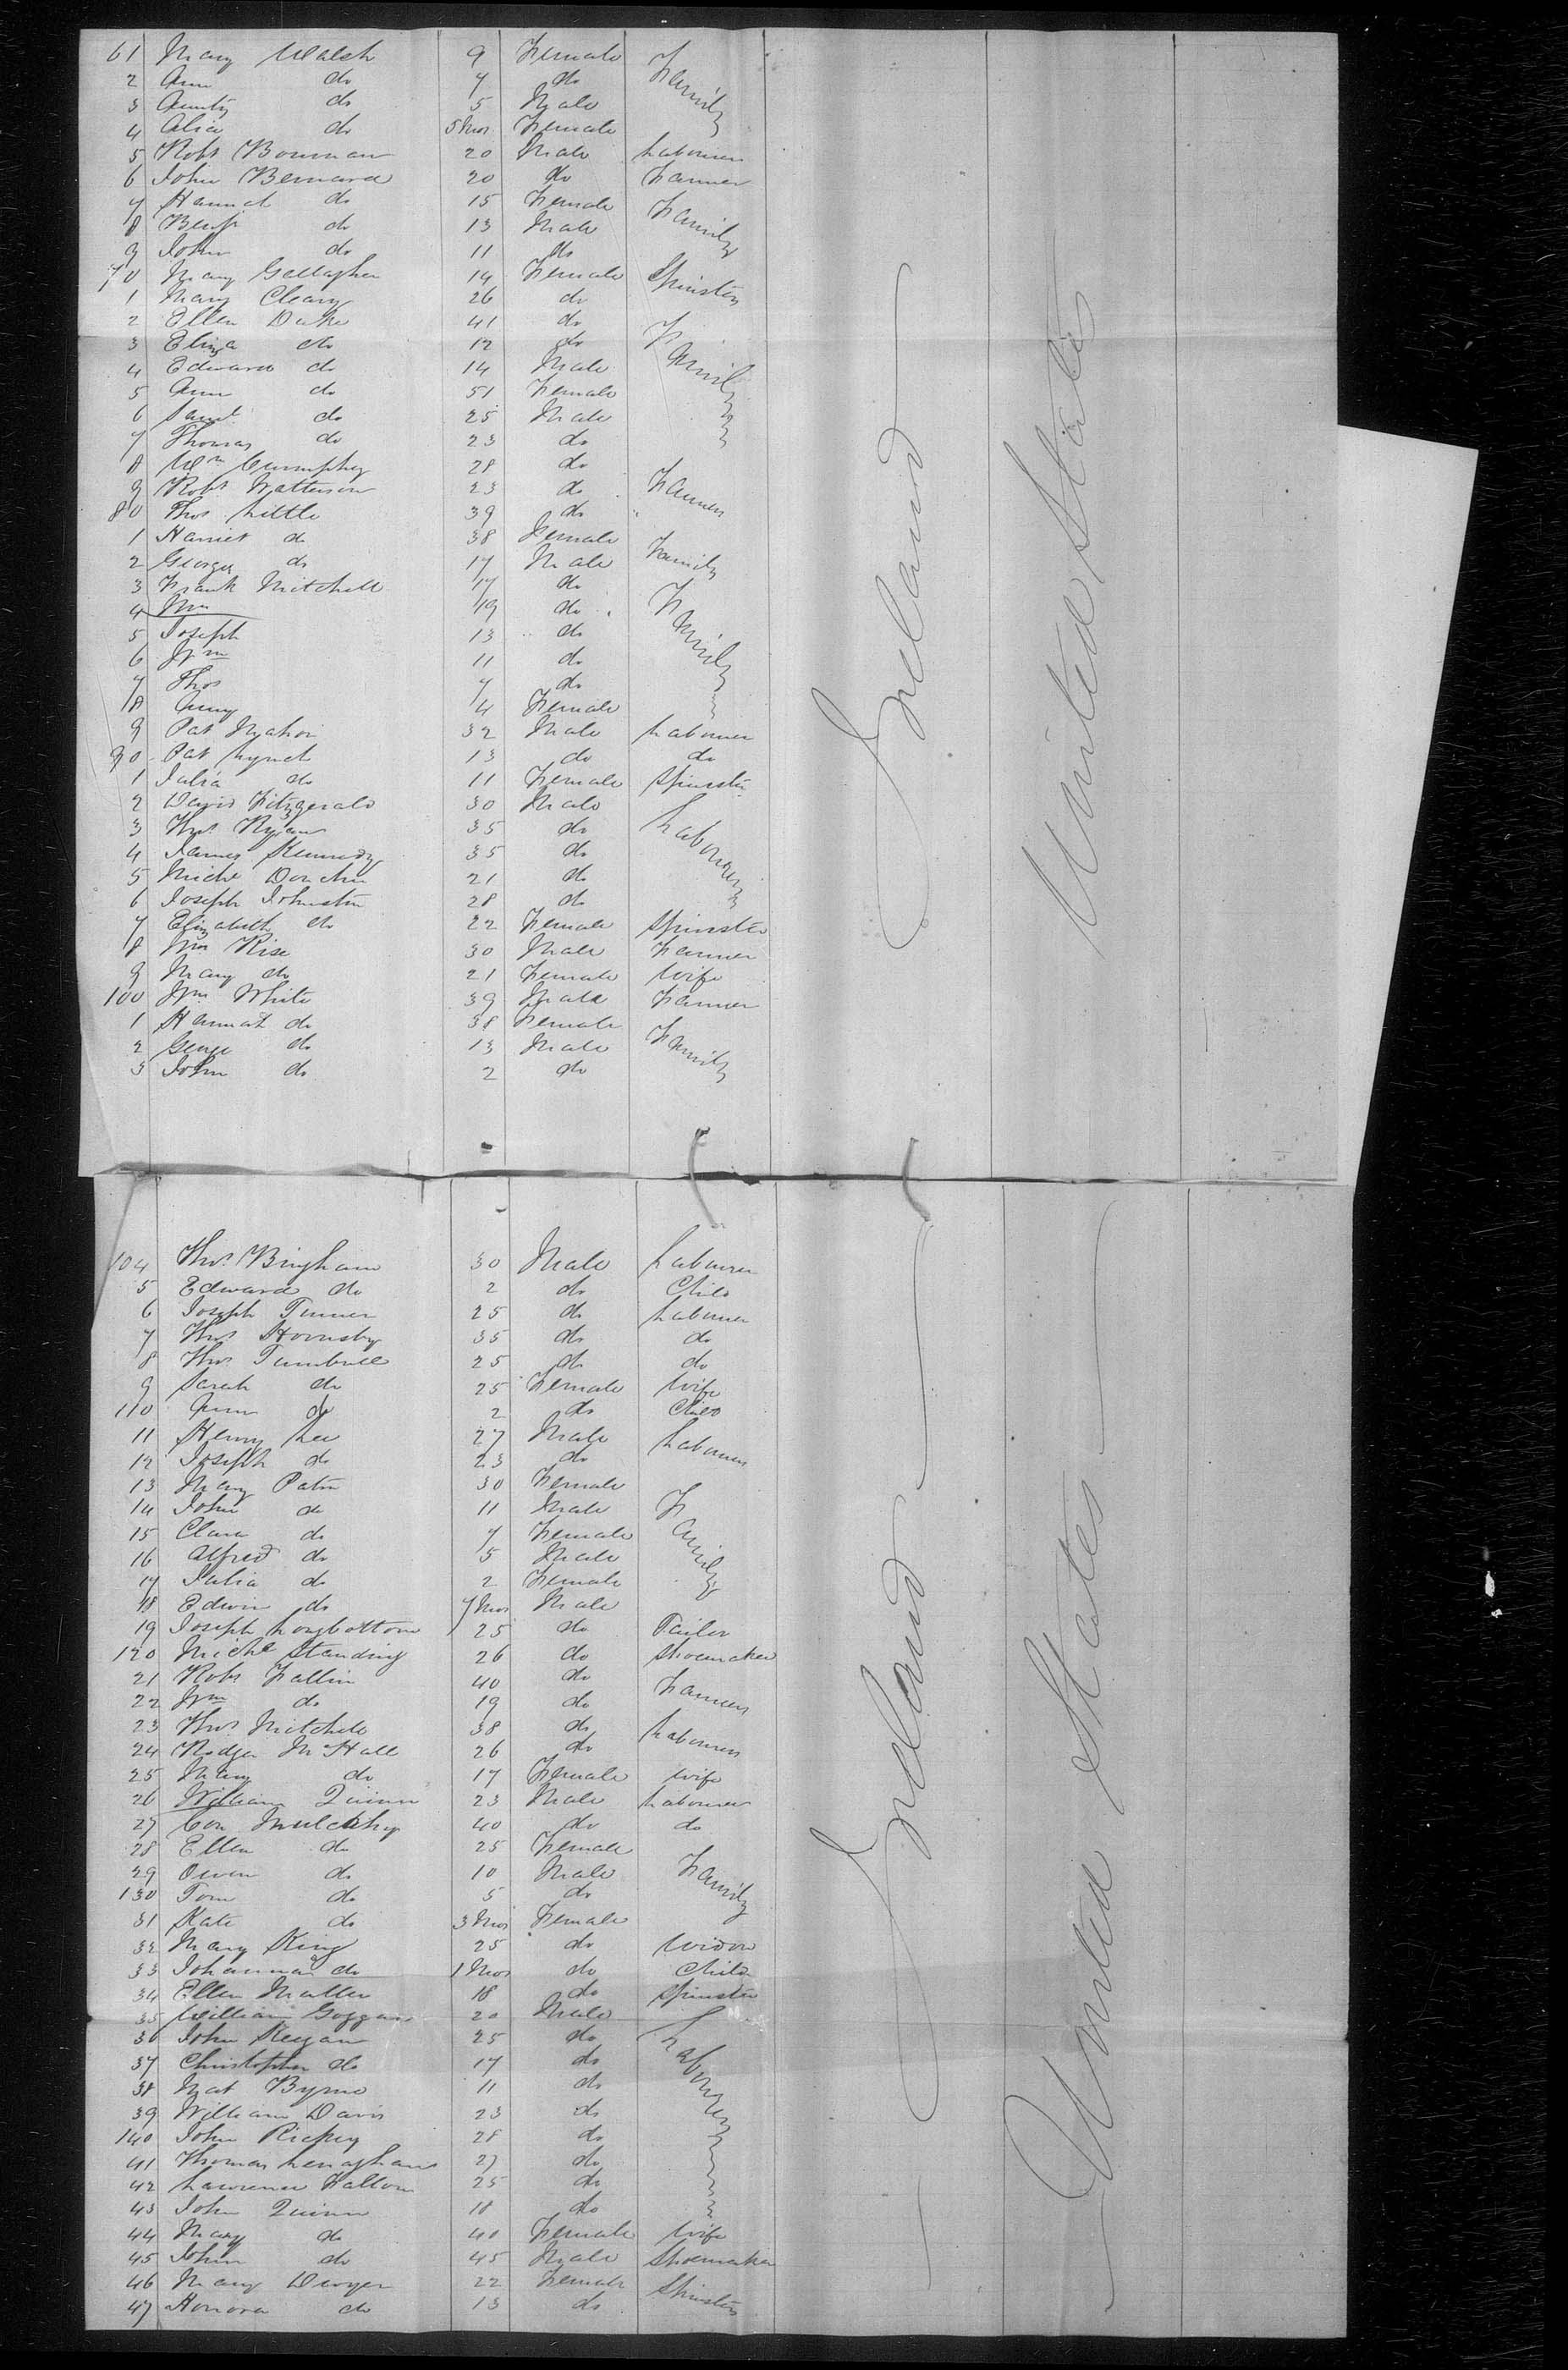 61 Mary Walsh 9 Female Family
2 Ann do 7 do
3 do 5 Male
4 do 5 Mos Female
5 Robt Bowman 20 Male Labourer
6 John Bernard 20 do Farmer
7 Hannah do 15 Female Family
8 Benj do 13 Male
9 John do 11 do
70 Mary Gallagher 14 Female Spinsters
1 Mary Cleary 26 do
2 Ellen Duke 41 do Family
3 Eliza do 12 do
4 Edward do 14 Male
5 Ann do 51 Female
6 Saml do 25 Male
7 Thomas do 23 do
8 Wm Cumphey 28 do Farmers
9 Robt Watterson 23 do
80 Thos Little 39 do
1 Harriet do 38 Female Family
2 George do 17 Male
3 Frank Mitchell 17 do Family
4 19 do
5 Joseph 13 do
6 Wm 11 do
7 Thos 7 do
8 4 Female
9 Pat Mahon 32 Male Labourer
90 Pat Lynch 13 do do
1 Julia do 11 Female Spinster
2 David Fitzgerald 30 Male Labourers
3 Thos Ryan 35 do
4 James Kennedy 35 do
5 Michl 21 do
6 Joseph Johnston 28 do
7 Elizabeth do 22 Female Spinster
8 Wm Rise 30 Male Farmer
9 Mary do 21 Female Wife
100 Wm White 39 Male Farmer
1 Hannah do 38 Female Family
2 George do 13 Male
3 John do 2 do
Ireland
United States
104 Thos Bingham 30 Male Labourer
5 Edward do 2 do Child
6 Joseph Turner 25 do Labourer
7 Thos Hornsby 35 do do
8 Thos Turnbull 25 do do
9 Sarah do 25 Female Wife
110 Ann do 2 do Child
11 Henry Lee 27 Male Labourers
12 Joseph do 23 do
13 Mary 30 Female Family
14 John do 11 Male
15 Clara do 7 Female
16 Alfred do 5 Male
17 Julia do 2 Female
18 Edwin do 7 Mos Male
19 Joseph Longbottom 25 do Tailor
120 Michl Standing 26 do Shoemaker
21 Robt Fallin 40 do Farmers
22 Wm do 19 do
23 Thos Mitchell 38 do Labourers
24 Rodger McHale 26 do
25 Mary do 17 Female Wife
26 William Quinn 23 Male Labourer
27 Con Mulcahy 40 do do
28 Ellen do 25 Female Family
29 Owen do 10 Male
130 Tom do 5 do
31 Kate do 3 Mos Female
32 Mary King 25 do Widow
33 Johanna do 1 Mos do Child
34 Ellen 18 do Spinster
35 William Goggan 20 Male Labourers
36 John Keegan 25 do
37 Christopher do 17 do
38 Mat Byrne 11 do
39 William Davis 23 do
140 John Richey 28 do
41 Thomas Lenaghan 27 do
42 Lawrence Fallon 25 do
43 John Quinn 18 do
44 Mary do 40 Female Wife
45 John do 45 Male Shoemaker
46 Mary Dwyer 22 Female Spinsters
47 Honora do 13 do
Ireland
United States